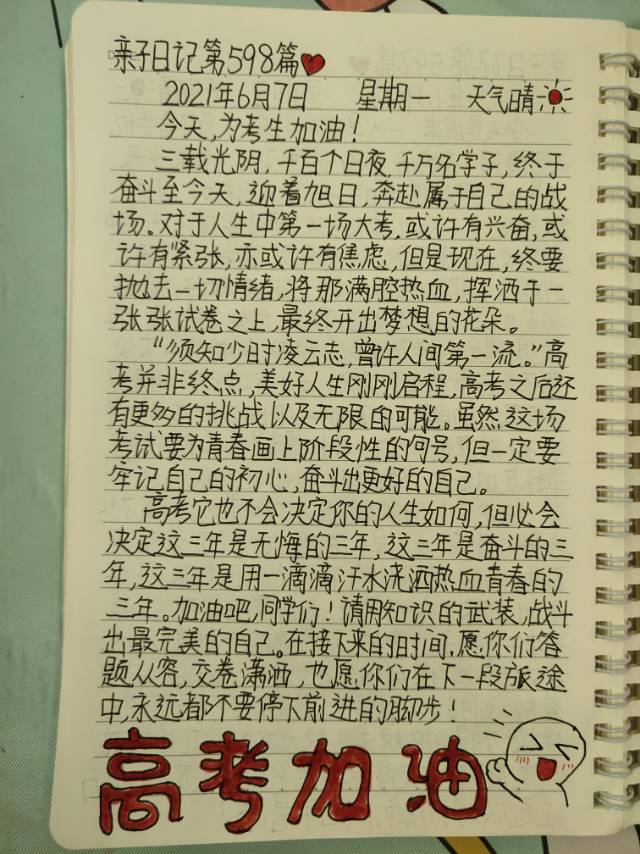 亲子日记第598篇
2021年6月7日 星期一 天气晴
今天,为考生加油!
三载光阴,千百个日夜,千万名学子,终于
奋斗至今天,迎着旭日,奔赴属于自己的战
场。对于人生中第一场大考,或许有兴奋,或
许有紧张,亦或许有焦虑,但是现在,终要
抛去一切情绪,将那满腔热血,挥洒于一
张张试卷之上,最终开出梦想的花朵。
“须知少时凌云志,曾许人间第一流。”高
考并非终点,美好人生刚刚启程,高考之后还
有更多的挑战以及无限的可能。虽然这场
考试要为青春画上阶段性的句号,但一定要
牢记自己的初心,奋斗出更好的自己。
高考它也不会决定你的人生如何,但必会
决定这三年是无悔的三年,这三年是奋斗的三
年,这三年是用一滴滴汗水浇洒热血青春的
三年。加油吧,同学们!请用知识的武装,战斗
出最完美的自己。在接下来的时间,愿你们答
题从容,交卷潇洒,也愿你们在下一段旅途
中,永远都不要停下前进的脚步!
高考加油